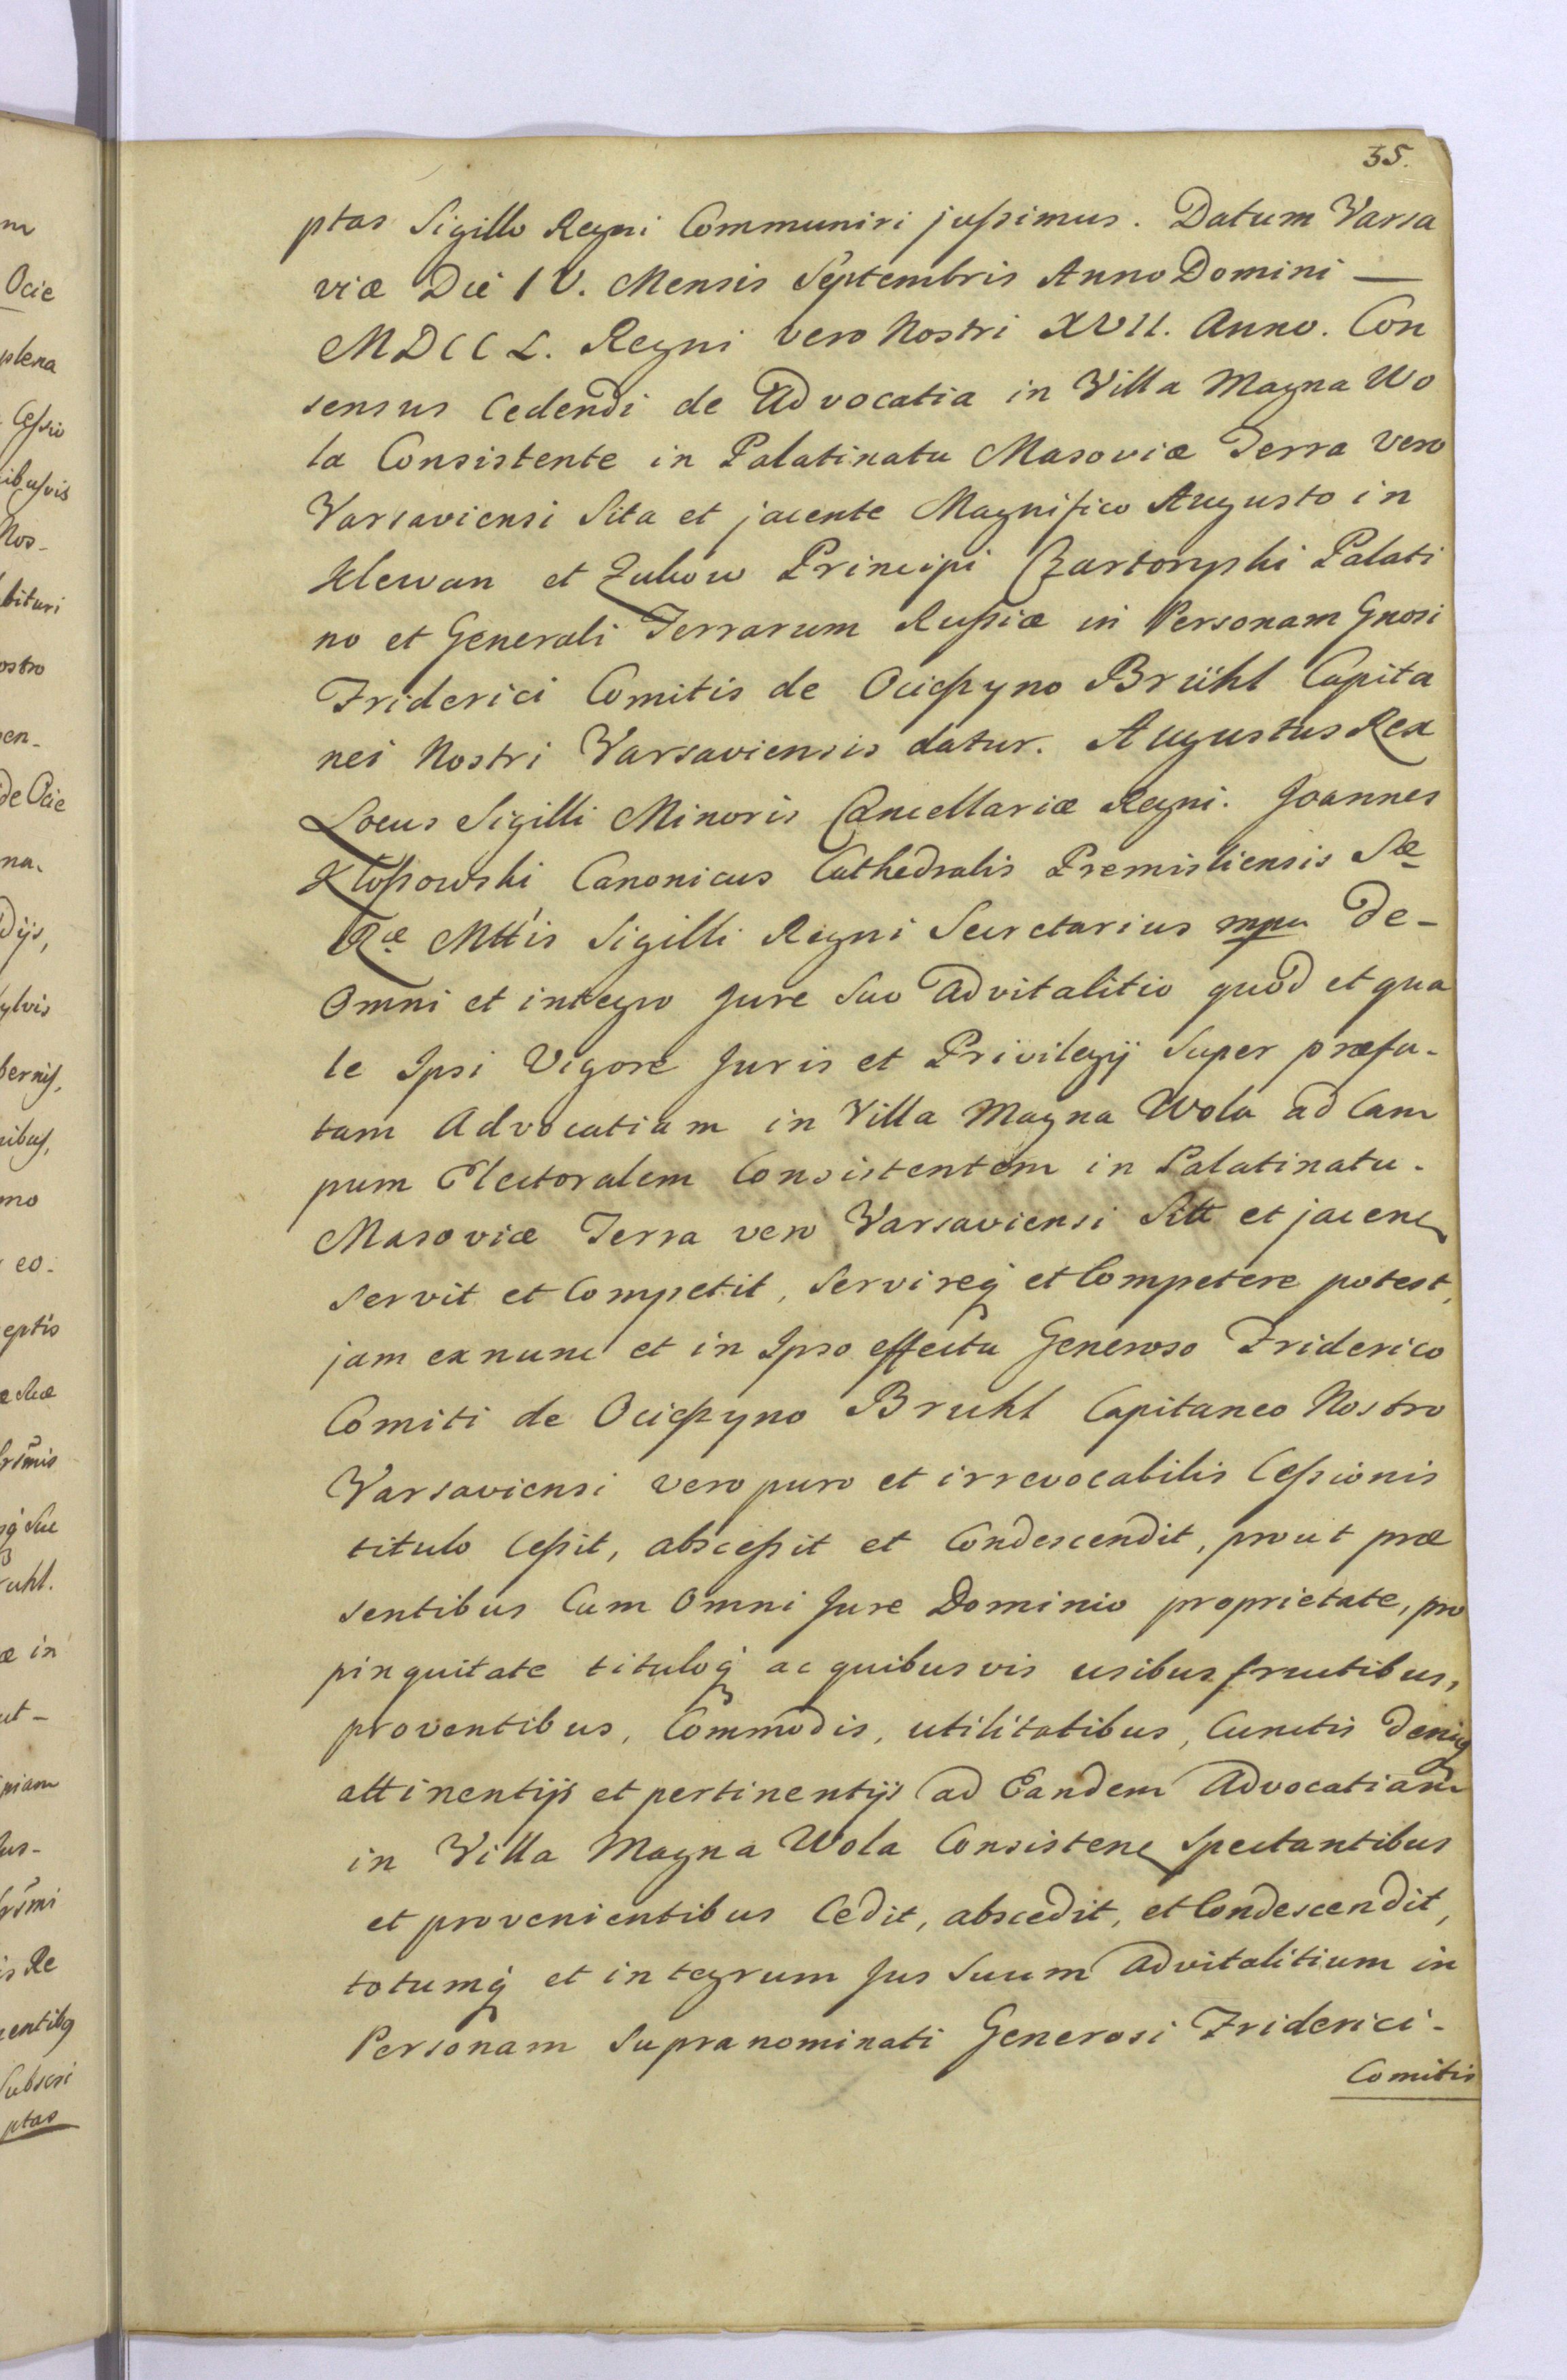 35.
ptas Sigillo Regni Communiri jussimus. Datum Varsa
viæ Die IV. Mensis Septembris Anno Domini —
MDCCL. Regni vero Nostri XVII. Anno. Con
sensus Cedendi de Advocatia in Villa Magna Wo
la Consistente in Palatinatu Masoviæ Terra vero
Varsaviensi Sita et jacente Magnifico Augusto in
Klewan et Zukow Principi Czartoryski Palati
no et Generali Terrarum Russiæ in Personam Gnosi
Friderici Comitis de Ocieszyno Brühl Capita
nei Nostri Varsaviensis datur. Augustus Rex
Locus Sigilli Minoris Cancellariæ Regni. Joannes
Kłossowski Canonicus Cathedralis Premisliensis Sæ
Ræ Mttis Sigilli Regni Secretarius mpu De-
Omni et integro Jure Suo Advitalitio quod et qua
le Ipsi Vigore Juris et Privilegij Super præfa-
tam Advocatiam in Villa Magna Wola ad Cam
pum Electoralem Consistentem in Palatinatu-
Masoviæ Terra vero Varsaviensi Sitt et jacen
Servit et Competit, Servireq et Competere potest,
jam exnunc et in Ipso effectu Generoso Friderico
Comiti de Ocieszyno Bruhl Capitaneo Nostro
Varsaviensi vero puro et irrevocabilis Cessionis
titulo Cessit, abscessit et Condescendit, prout præ
sentibus Cum Omni Jure Dominio proprietate, pro
pinquitate tituloq ac quibusvis usibus fructibus,
proventibus, Commodis, utilitatibus, Cunctis deniq
attinentijs et pertinentijs ad Eandem Advocatiam
in Villa Magna Wola Consisten Spectantibus
et provenientibus Cedit, abscedit, et Condescendit,
totumq et integrum Jus Suum Advitalitium in
Personam Supranominati Generosi Friderici-
Comitis